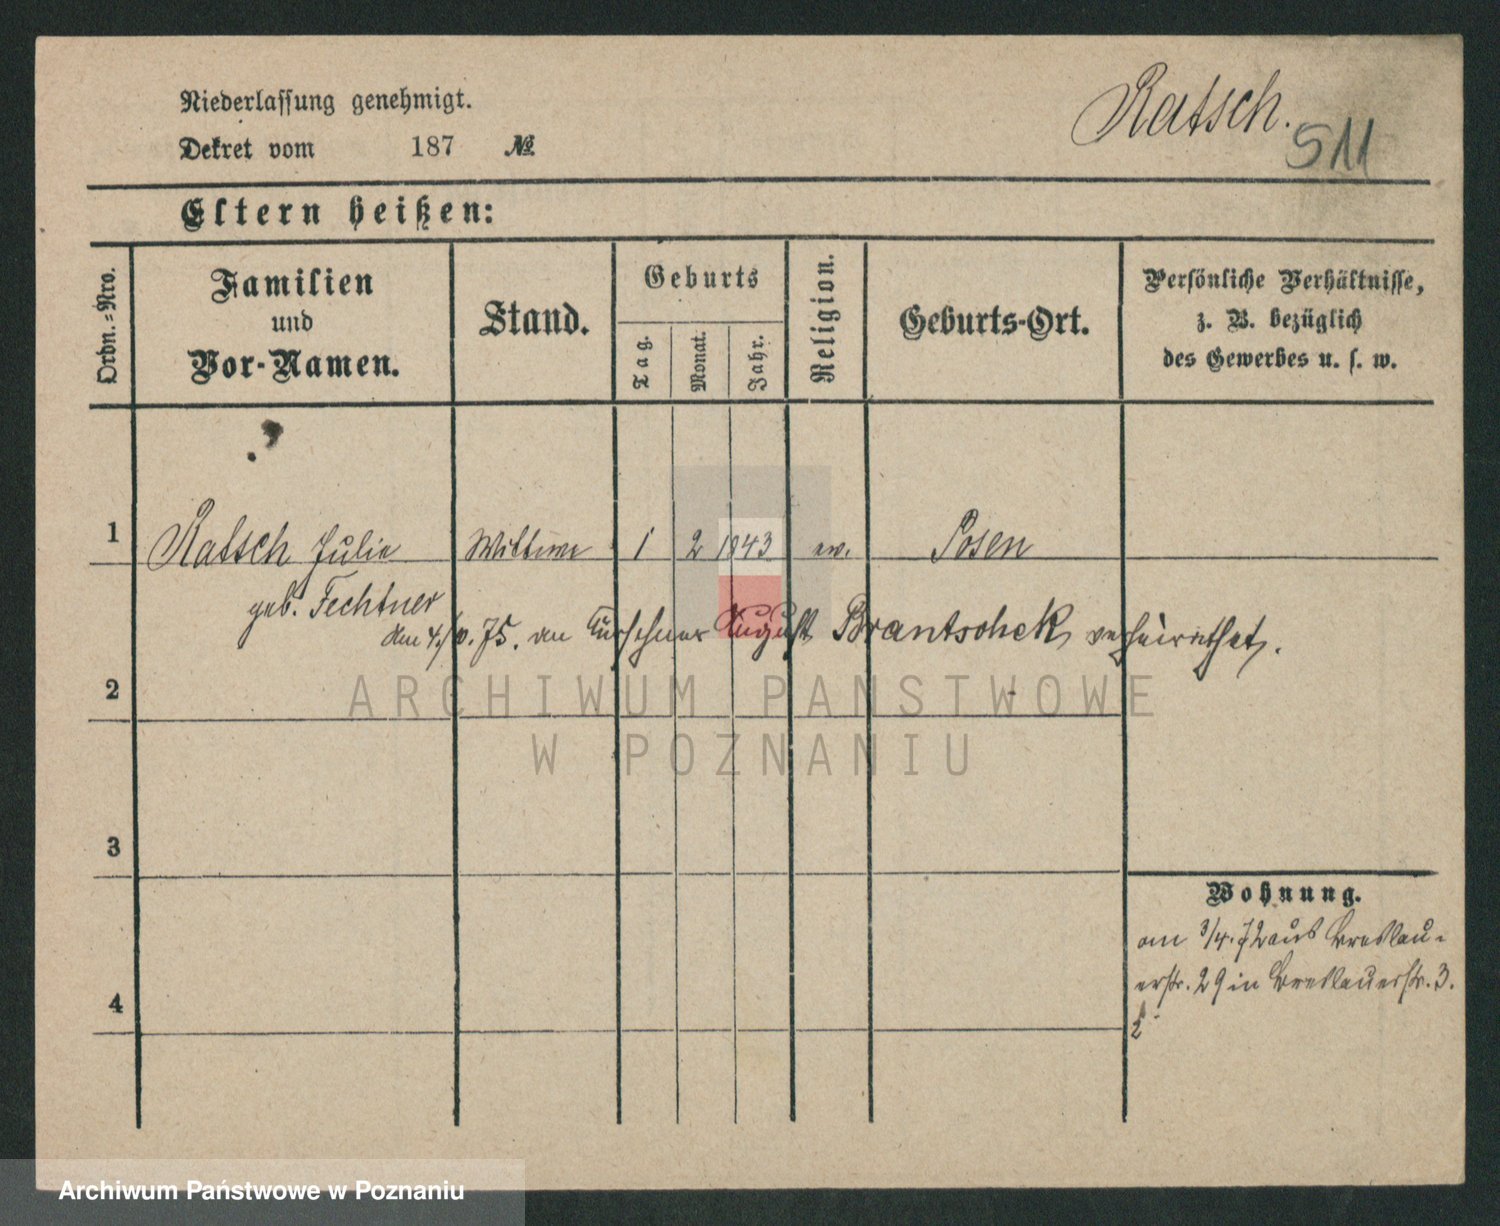 Niederlassung genehmigt.
Ratsch.
511
Dekret vom 187 №
Eltern heißen:
Ordn.-Nro.
Familien
und
Vor-Namen.
Stand.
Geburts
Tag.
Monat.
Jahr.
Religion.
Geburts-Ort.
Persönliche Verhältnisse,
z. B. bezüglich
des Gewerbes u. s. w.
1 Ratsch Julie Wittwe 1 2 1843 ev. Posen
geb. Fechtner
den 4./10. 75. an Kürschner August Brantschek verheirathet.
2
ARCHIWUM PAŃSTWOWE
W POZNANIU
3
Wohnung.
am 3/4. 72 aus Breslau-
erstr. 29 in Breslauerstr. 3.
4
Archiwum Państwowe w Poznaniu